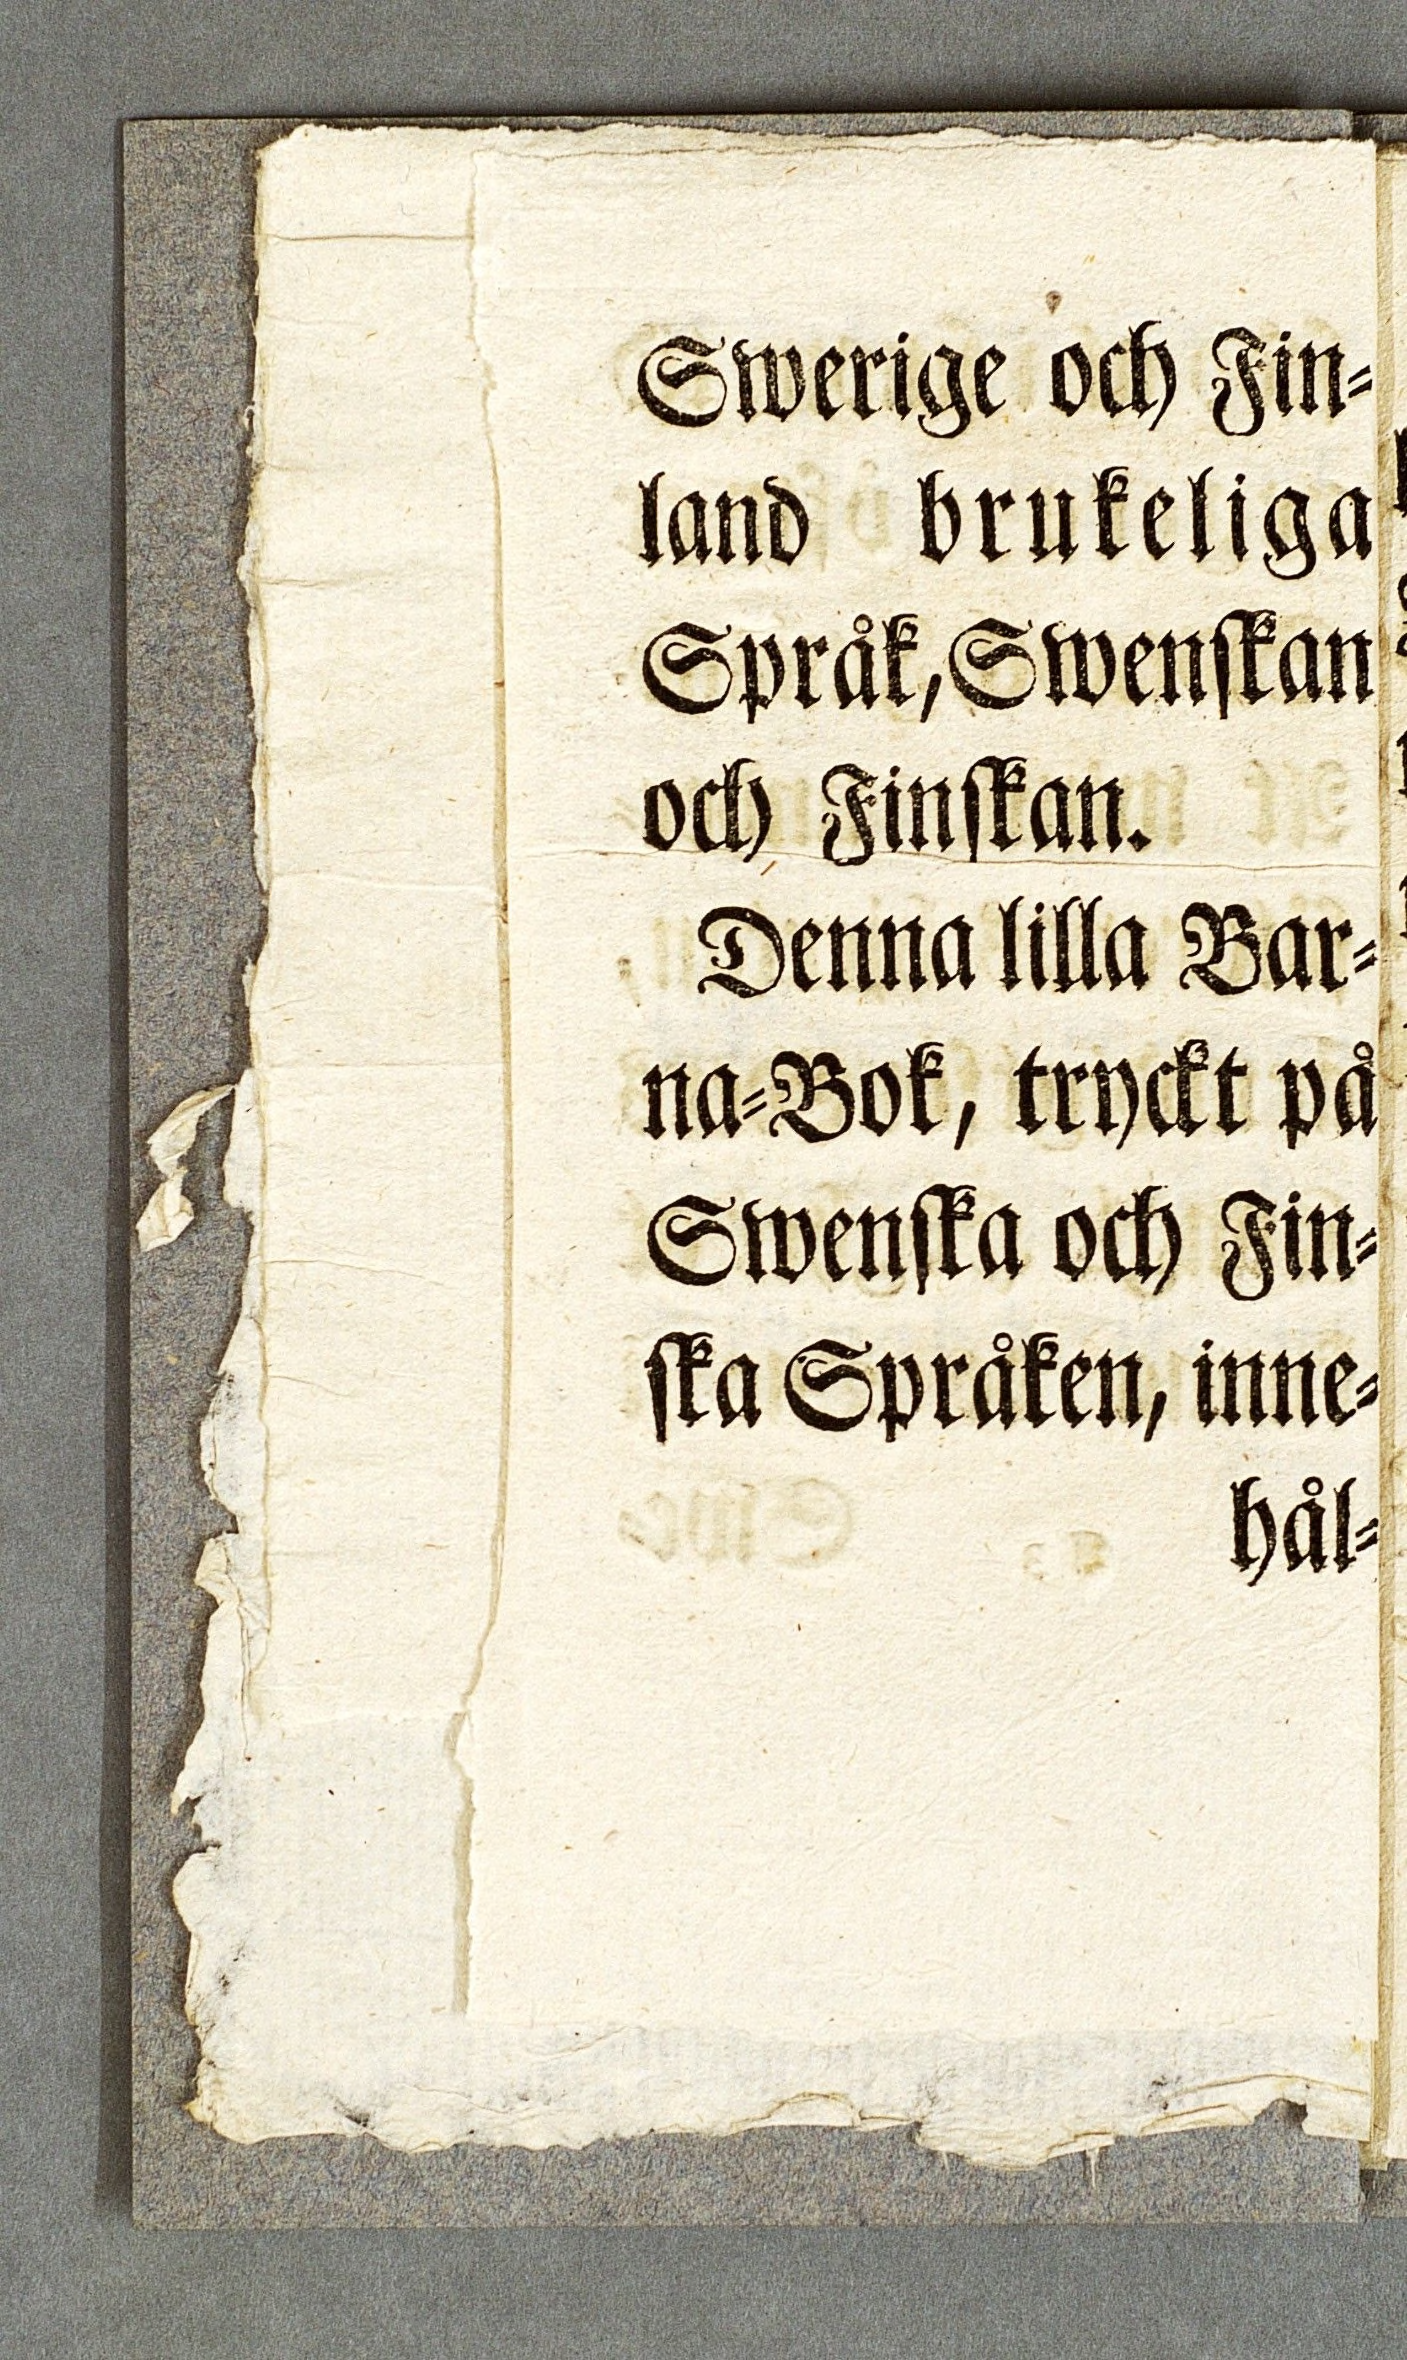 Swerige och Fin⸗
land brukeliga
Språk, Swenſkan
och Finſkan.
Denna lilla Bar⸗
na⸗Bok, tryckt på
Swenſka och Fin⸗
ſka Språken, inne⸗
hål⸗